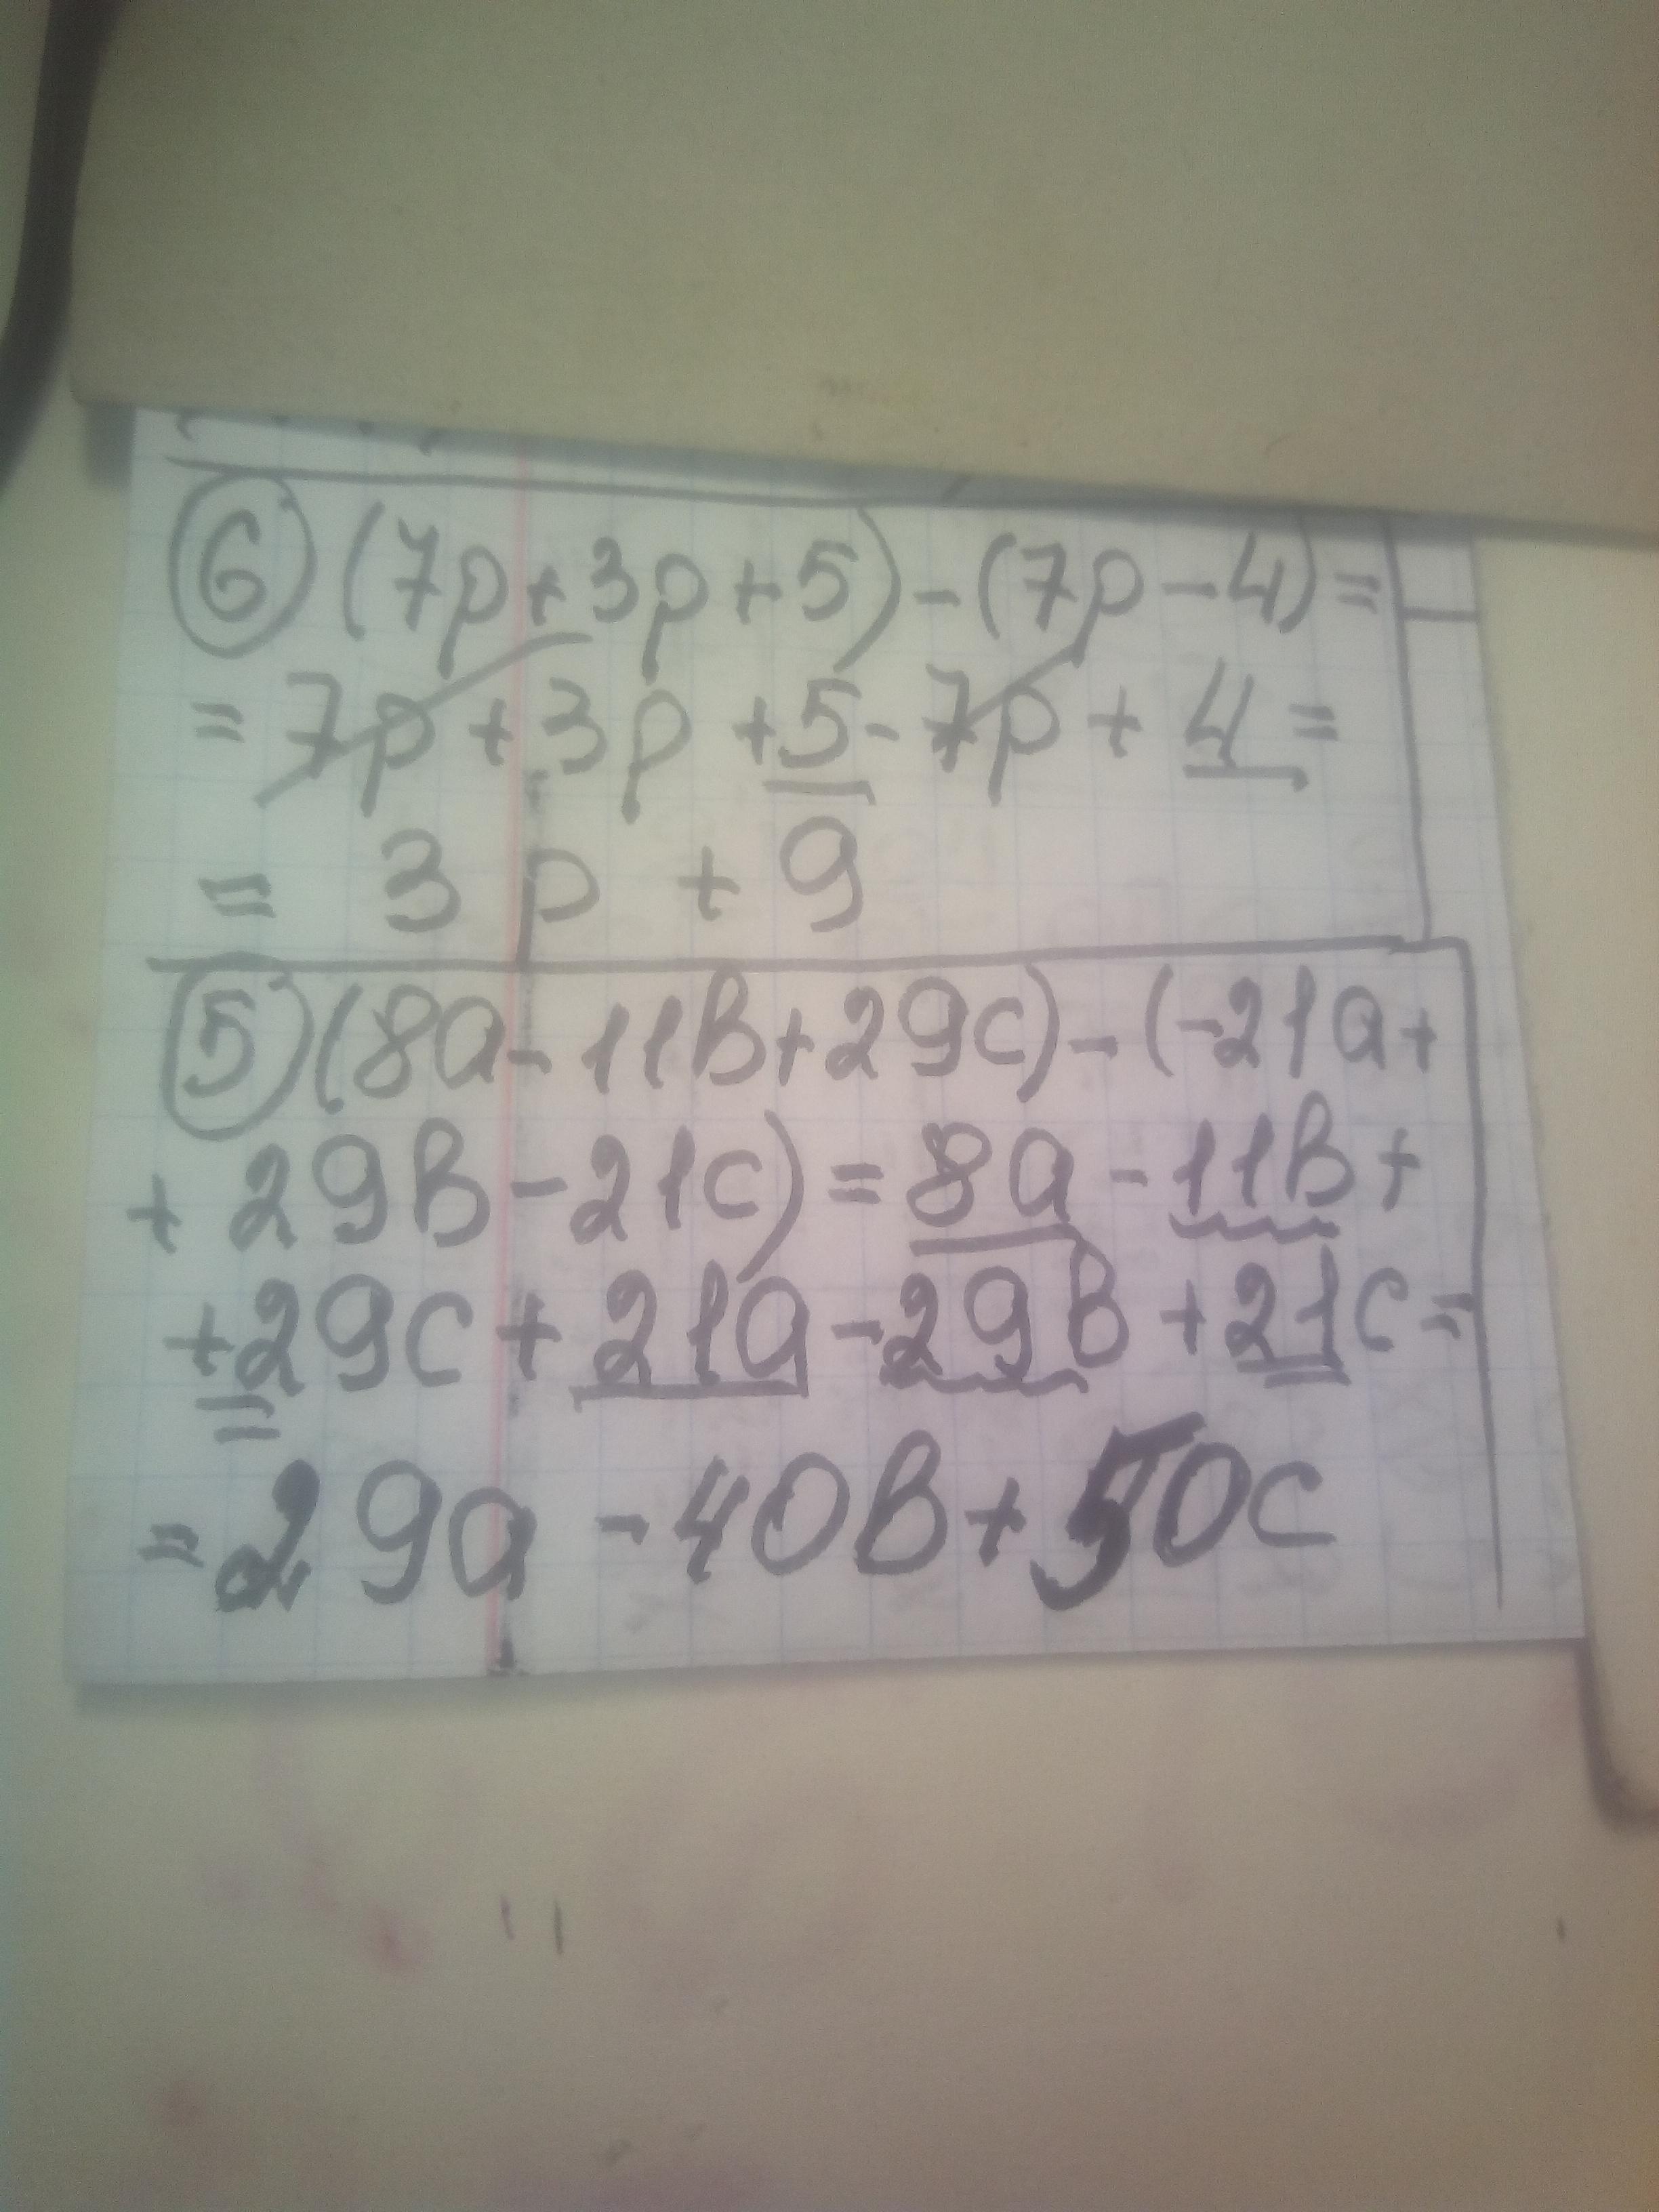 6) (7p+3p+5)-(7p-4)=
=7p+3p+5-7p+4=
= 3p+9
5) (8a-11b+29c)-(-21a+
+29b-21c)=8a-11b+
+29c+21a-29b+21c=
=29a-40b+50c